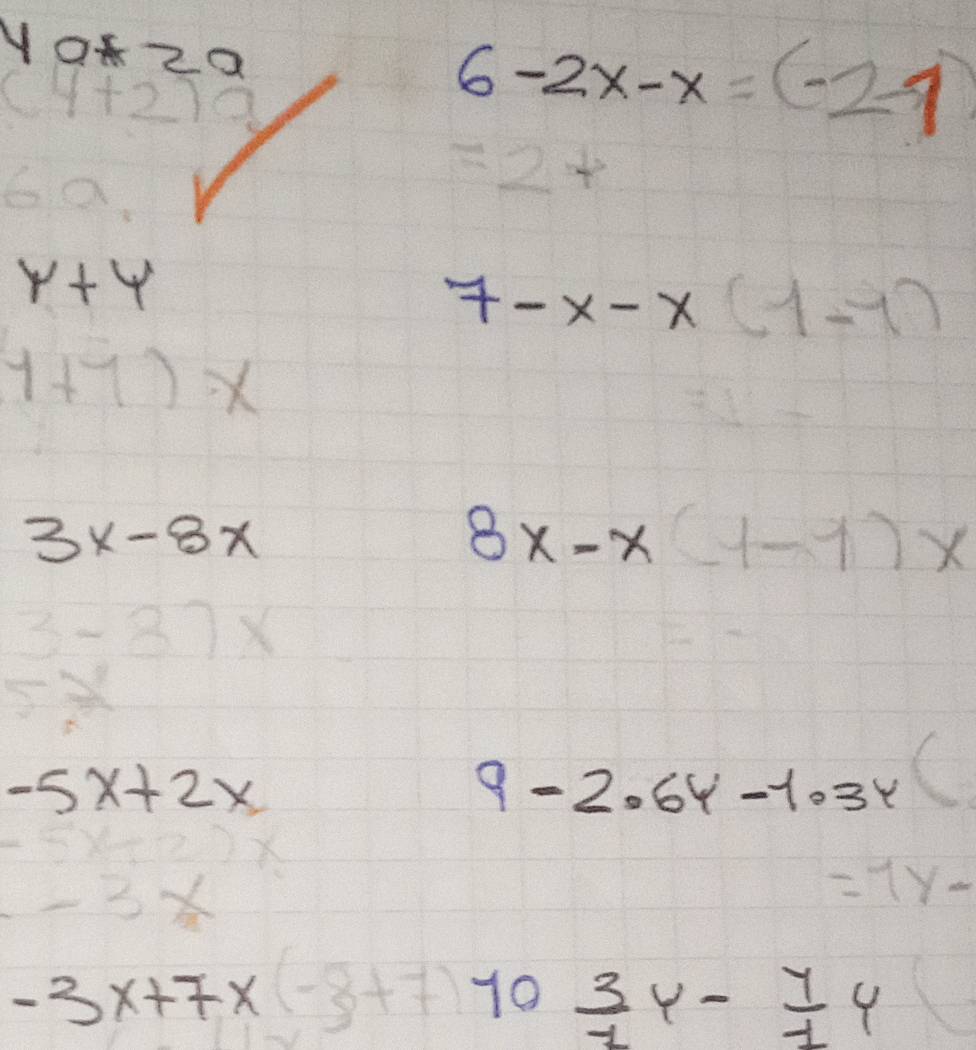 4a+2a
(4+2)a
6a
y+y
1+1) x
3x-8x
3-8)x
5x
-5x+2x
-5x+2)x
-3x
-3x+7x (-3+7)
6 -2x-x = (-2-1)
=2+
7 -x-x (1-1)
8 x-x (1-1)x
= -
9 -2.6y-1.3y (
=1y-
10 3/1 y - 1/1 y (